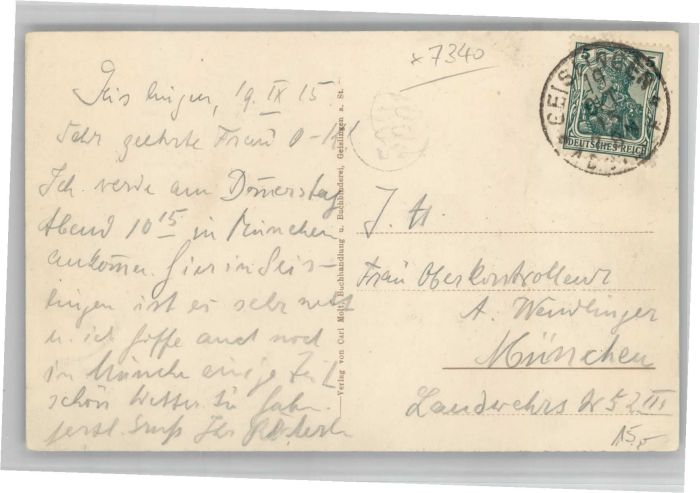 x 7340
Geislingen, 19. IX 15
Sehr geehrte Frau O-
Ich werde am Donnerstag
Abend 10 15 in München
ankommen. Hier in Geis-
lingen ist es sehr nett
u. ich hoffe auch noch
in München einige Zeit
schön Wetter zu haben.
herzl. Gruß Ihr
Verlag von Carl Moll, Buchhandlung u. Buchbinderei, Geislingen a. St.
GEISLINGEN
5 5
DEUTSCHES REICH
J. H.
Frau Oberkontrolleur
A. Wendlinger
München
Landwehrs Nr 52 III
15,-